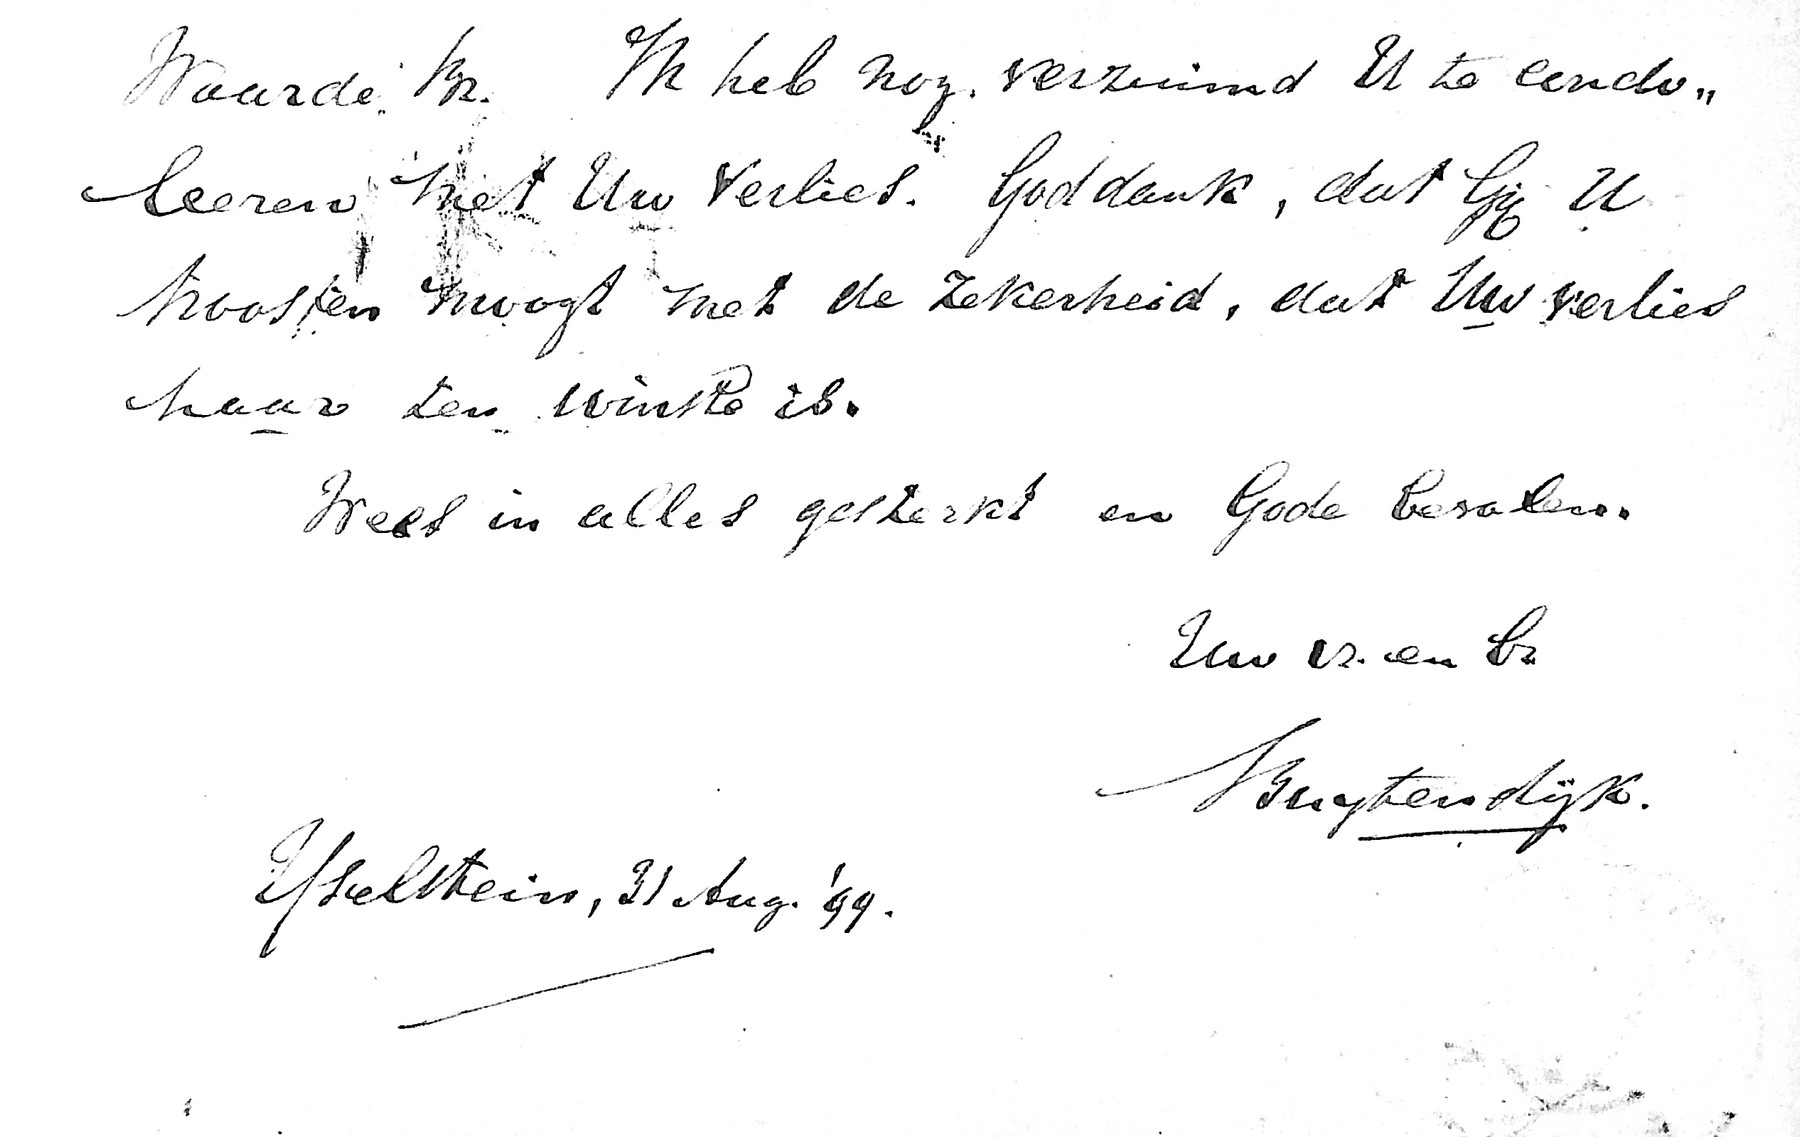 Waarde Br. Ik heb nog verzuimd U te condo„
leeren met Uw verlies. Goddank, dat Gij U
troosten moogt met de zekerheid, dat Uw verlies
haar ten winste is.
Wees in alles gesterkt en Gode bevolen.
Uw vr. en br
Buytendijk.
IJselstein, 31 Aug. '99.